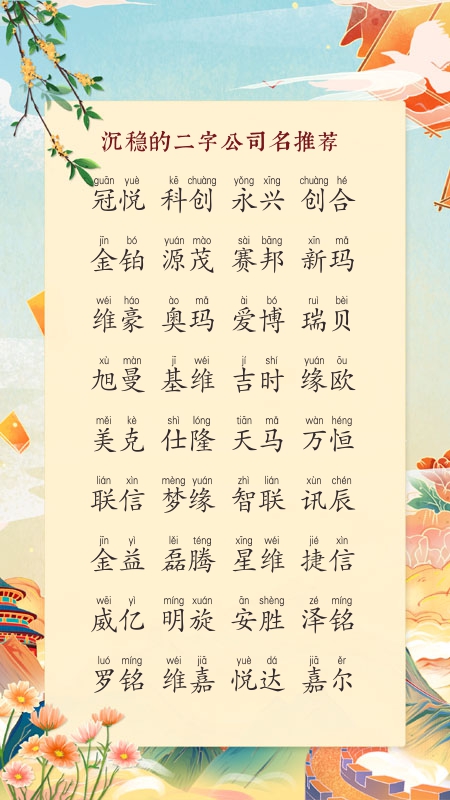 沉稳的二字公司名推荐
guān yuè kē chuàng yǒng xīng chuàng hé
冠悦 科创 永兴 创合
jīn bó yuán mào sài bāng xīn mǎ
金铂 源茂 赛邦 新玛
wéi háo ào mǎ ài bó ruì bèi
维豪 奥玛 爱博 瑞贝
xù màn jī wéi jí shí yuán ōu
旭曼 基维 吉时 缘欧
měi kè shì lóng tiān mǎ wàn héng
美克 仕隆 天马 万恒
lián xìn mèng yuán zhì lián xùn chén
联信 梦缘 智联 讯辰
jīn yì lěi téng xīng wéi jié xìn
金益 磊腾 星维 捷信
wēi yì míng xuán ān shèng zé míng
威亿 明旋 安胜 泽铭
luó míng wéi jiā yuè dá jiā ěr
罗铭 维嘉 悦达 嘉尔